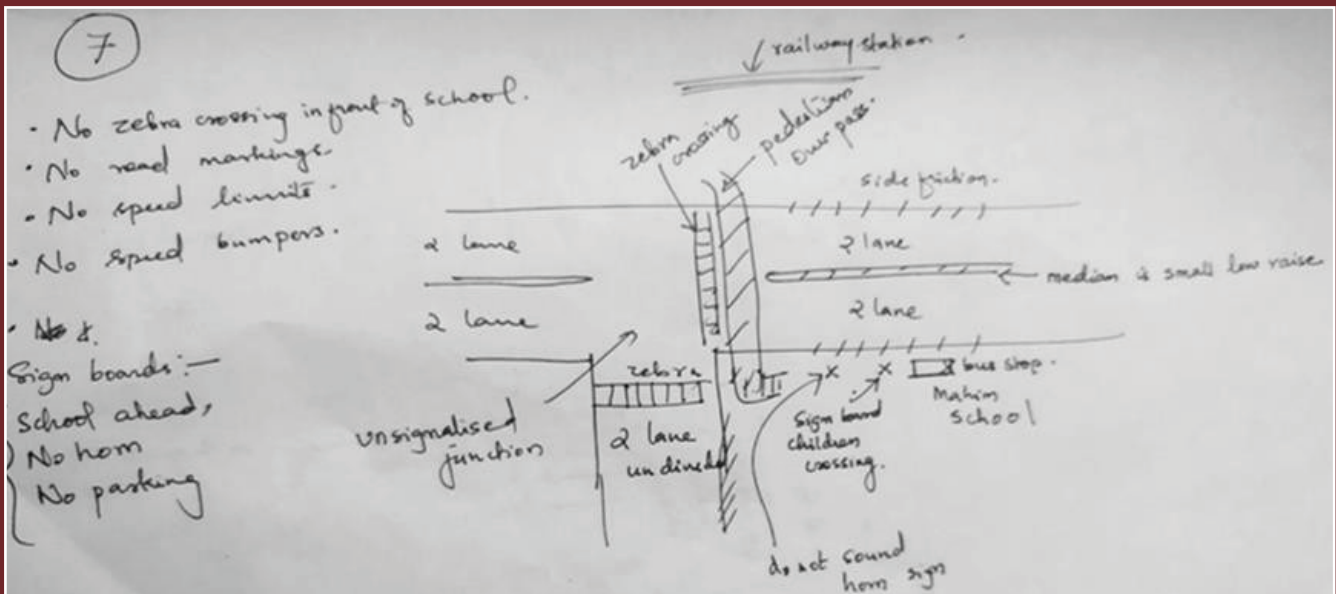 7
• No zebra crossing in front of school.
• No road markings.
• No speed limits.
• No speed bumpers.
Sign boards:-
School ahead,
No horn
No parking
railway station.
zebra
crossing
pedestrian
over pass.
side friction.
2 lane
2 lane
median is small low raise
2 lane
2 lane
unsignalised
junction
zebra
2 lane
undivided
bus stop.
Mahim
School
Sign board
children
crossing.
do not sound
horn sign